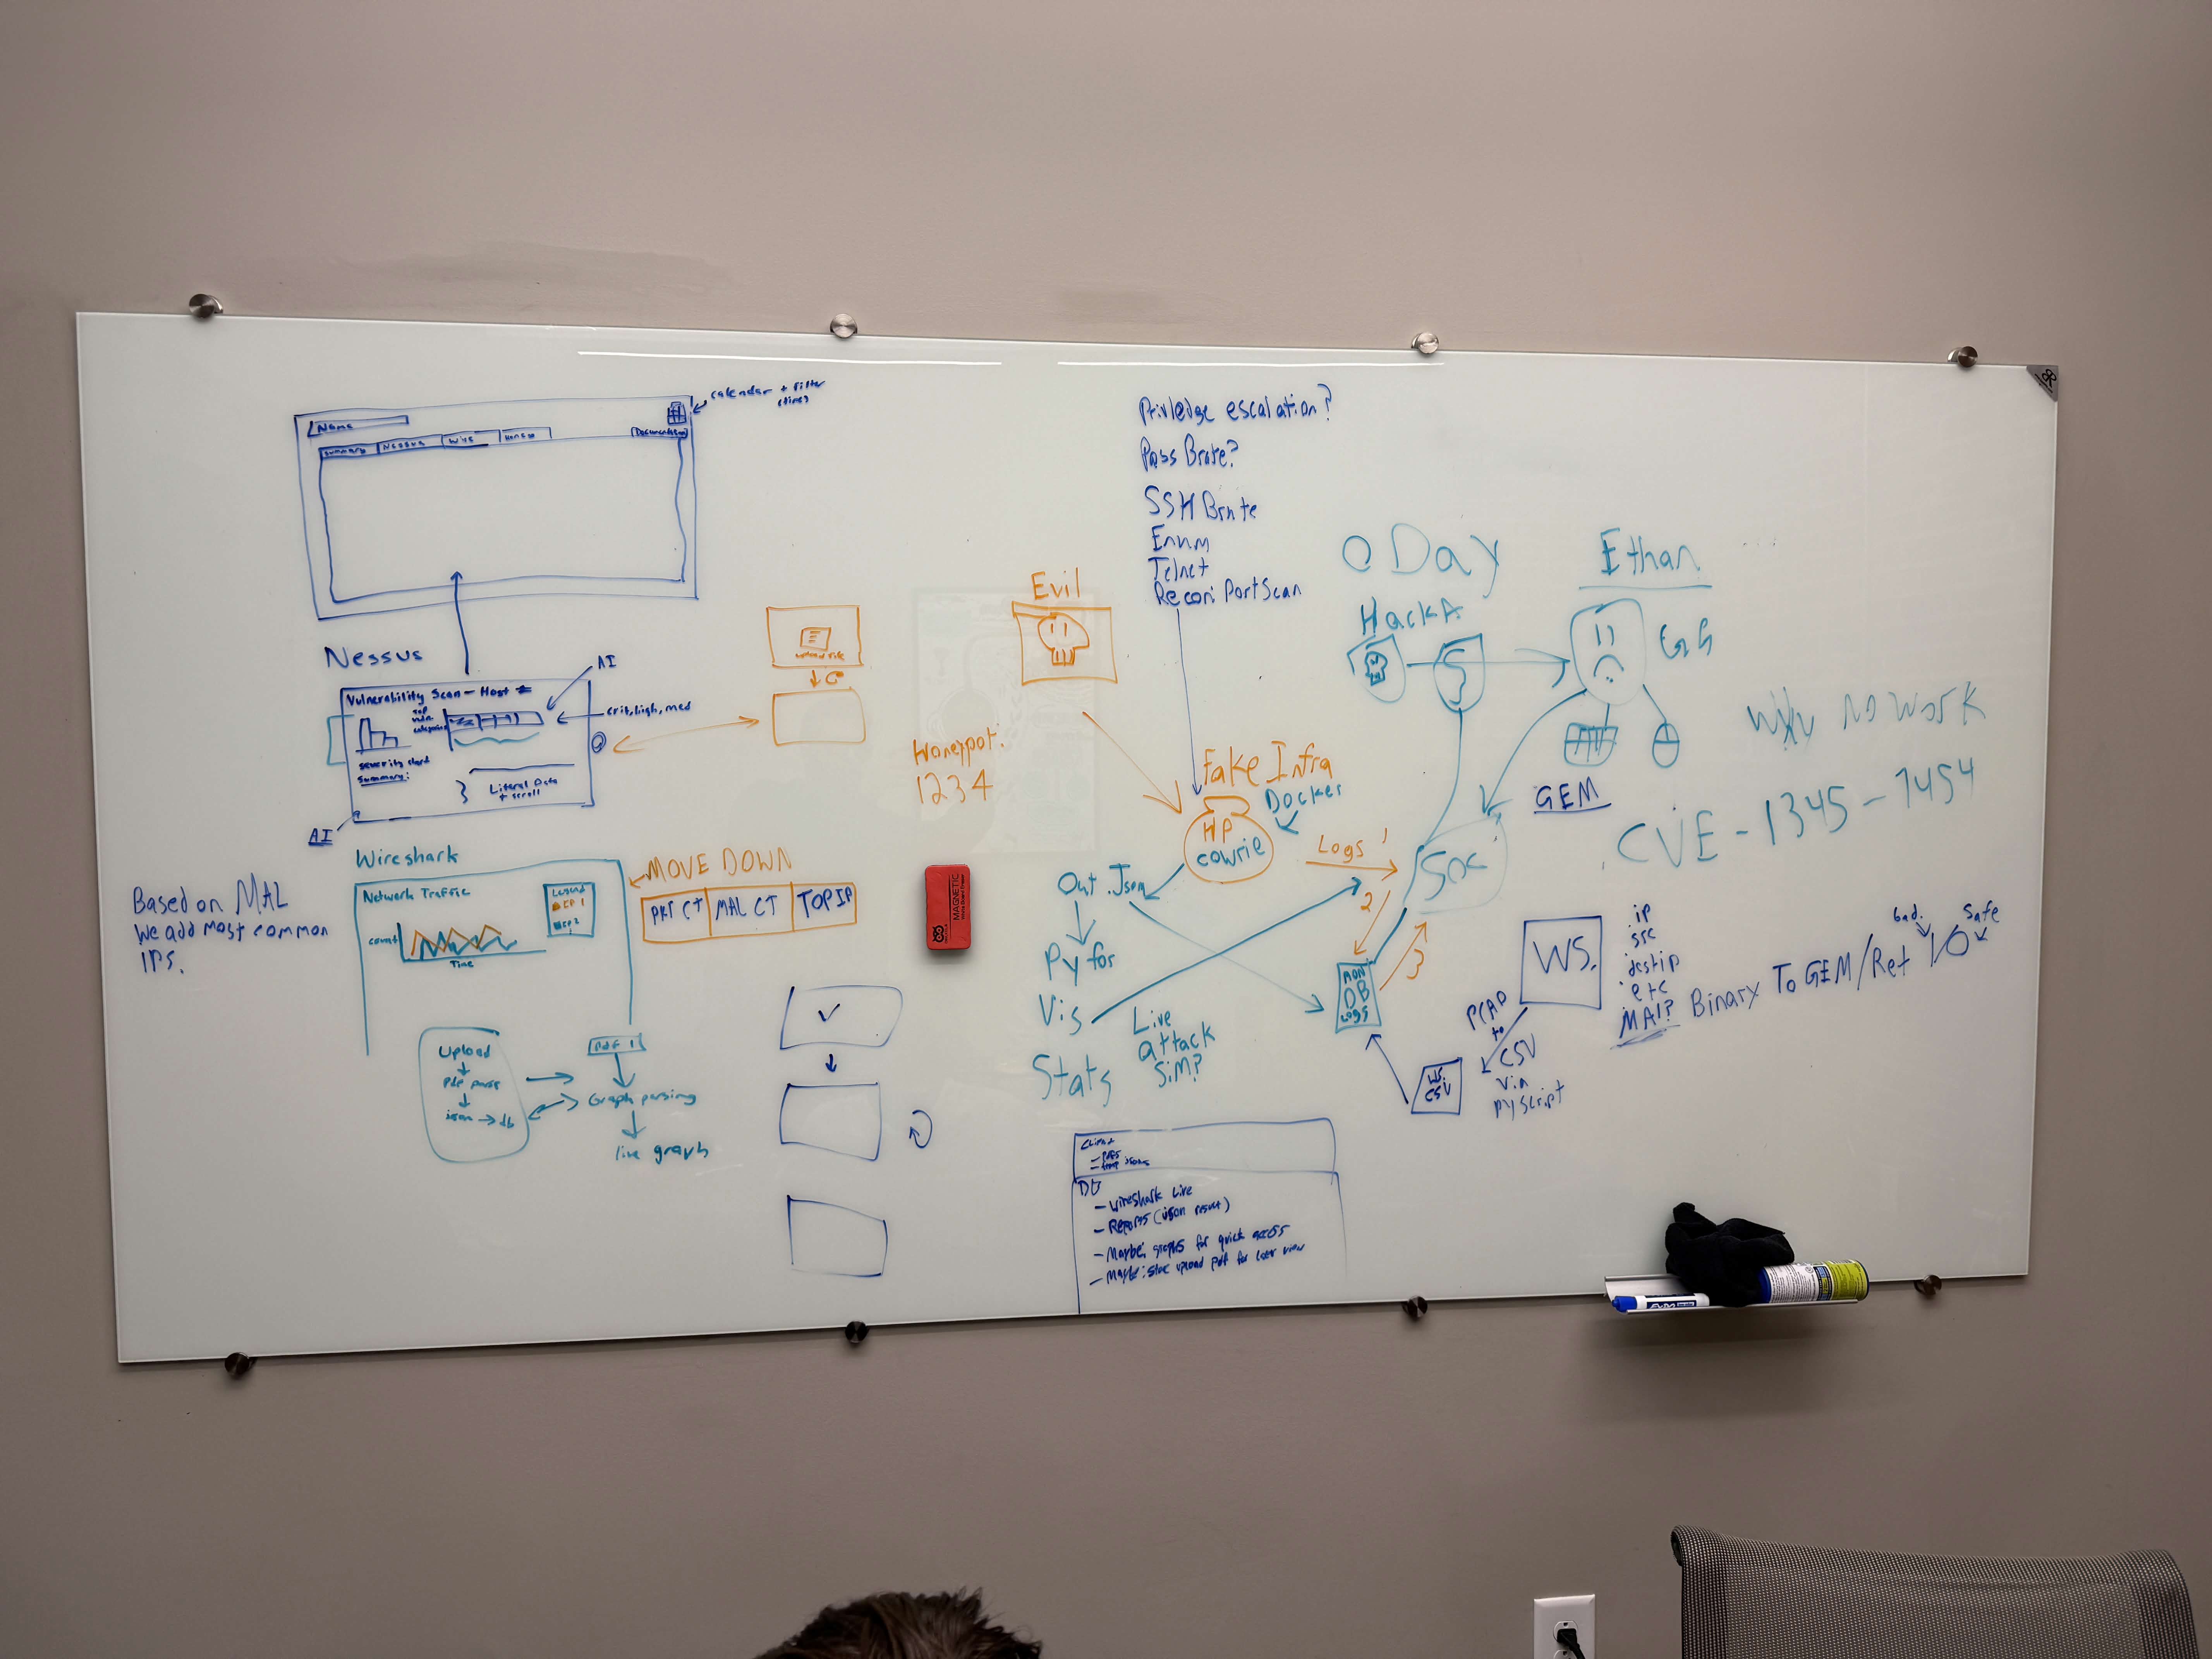 calendar + filter
(time)
Name
Summary
Nessus
Wire
Documentation
Nessus
AI
Vulnerability Scan - Host
Top
vuln
categories
crit, high, med
severity chart
Summary:
Literal Data
+ scroll
AI
Wireshark
Network Traffic
Legend
IP 1
IP 2
count
Time
Based on MAL
We add most common
IPs.
MOVE DOWN
PKT CT
MAL CT
TOP IP
Upload
json → db
Pdf 1
Graph parsing
live graph
upload file
Evil
Honeypot:
1234
Privledge escalation?
Pass Brute?
SSH Brute
Enum
Telnet
Recon: Port Scan
Fake Infra
Docker
HP
cowrie
Logs 1
2
3
Soc
Out.Json
Py for
Vis
Stats
Live
attack
Sim?
MON
DB
Logs
Client
- pdfs
- temp jsons
DB
- Wireshark Live
- Reports (json result)
- Maybe: graphs for quick access
- Maybe: store upload pdf for later view
0 Day
HackA
Ethan
GG
GEM
Why no work
CVE - 1345 - 7454
WS.
ip
src
destip
etc
MAL? Binary To GEM/Ret 1/0
bad.
Safe
PCAP
to
CSV
via
pyscript
WS.
CSV
MAGNETIC
EXPO